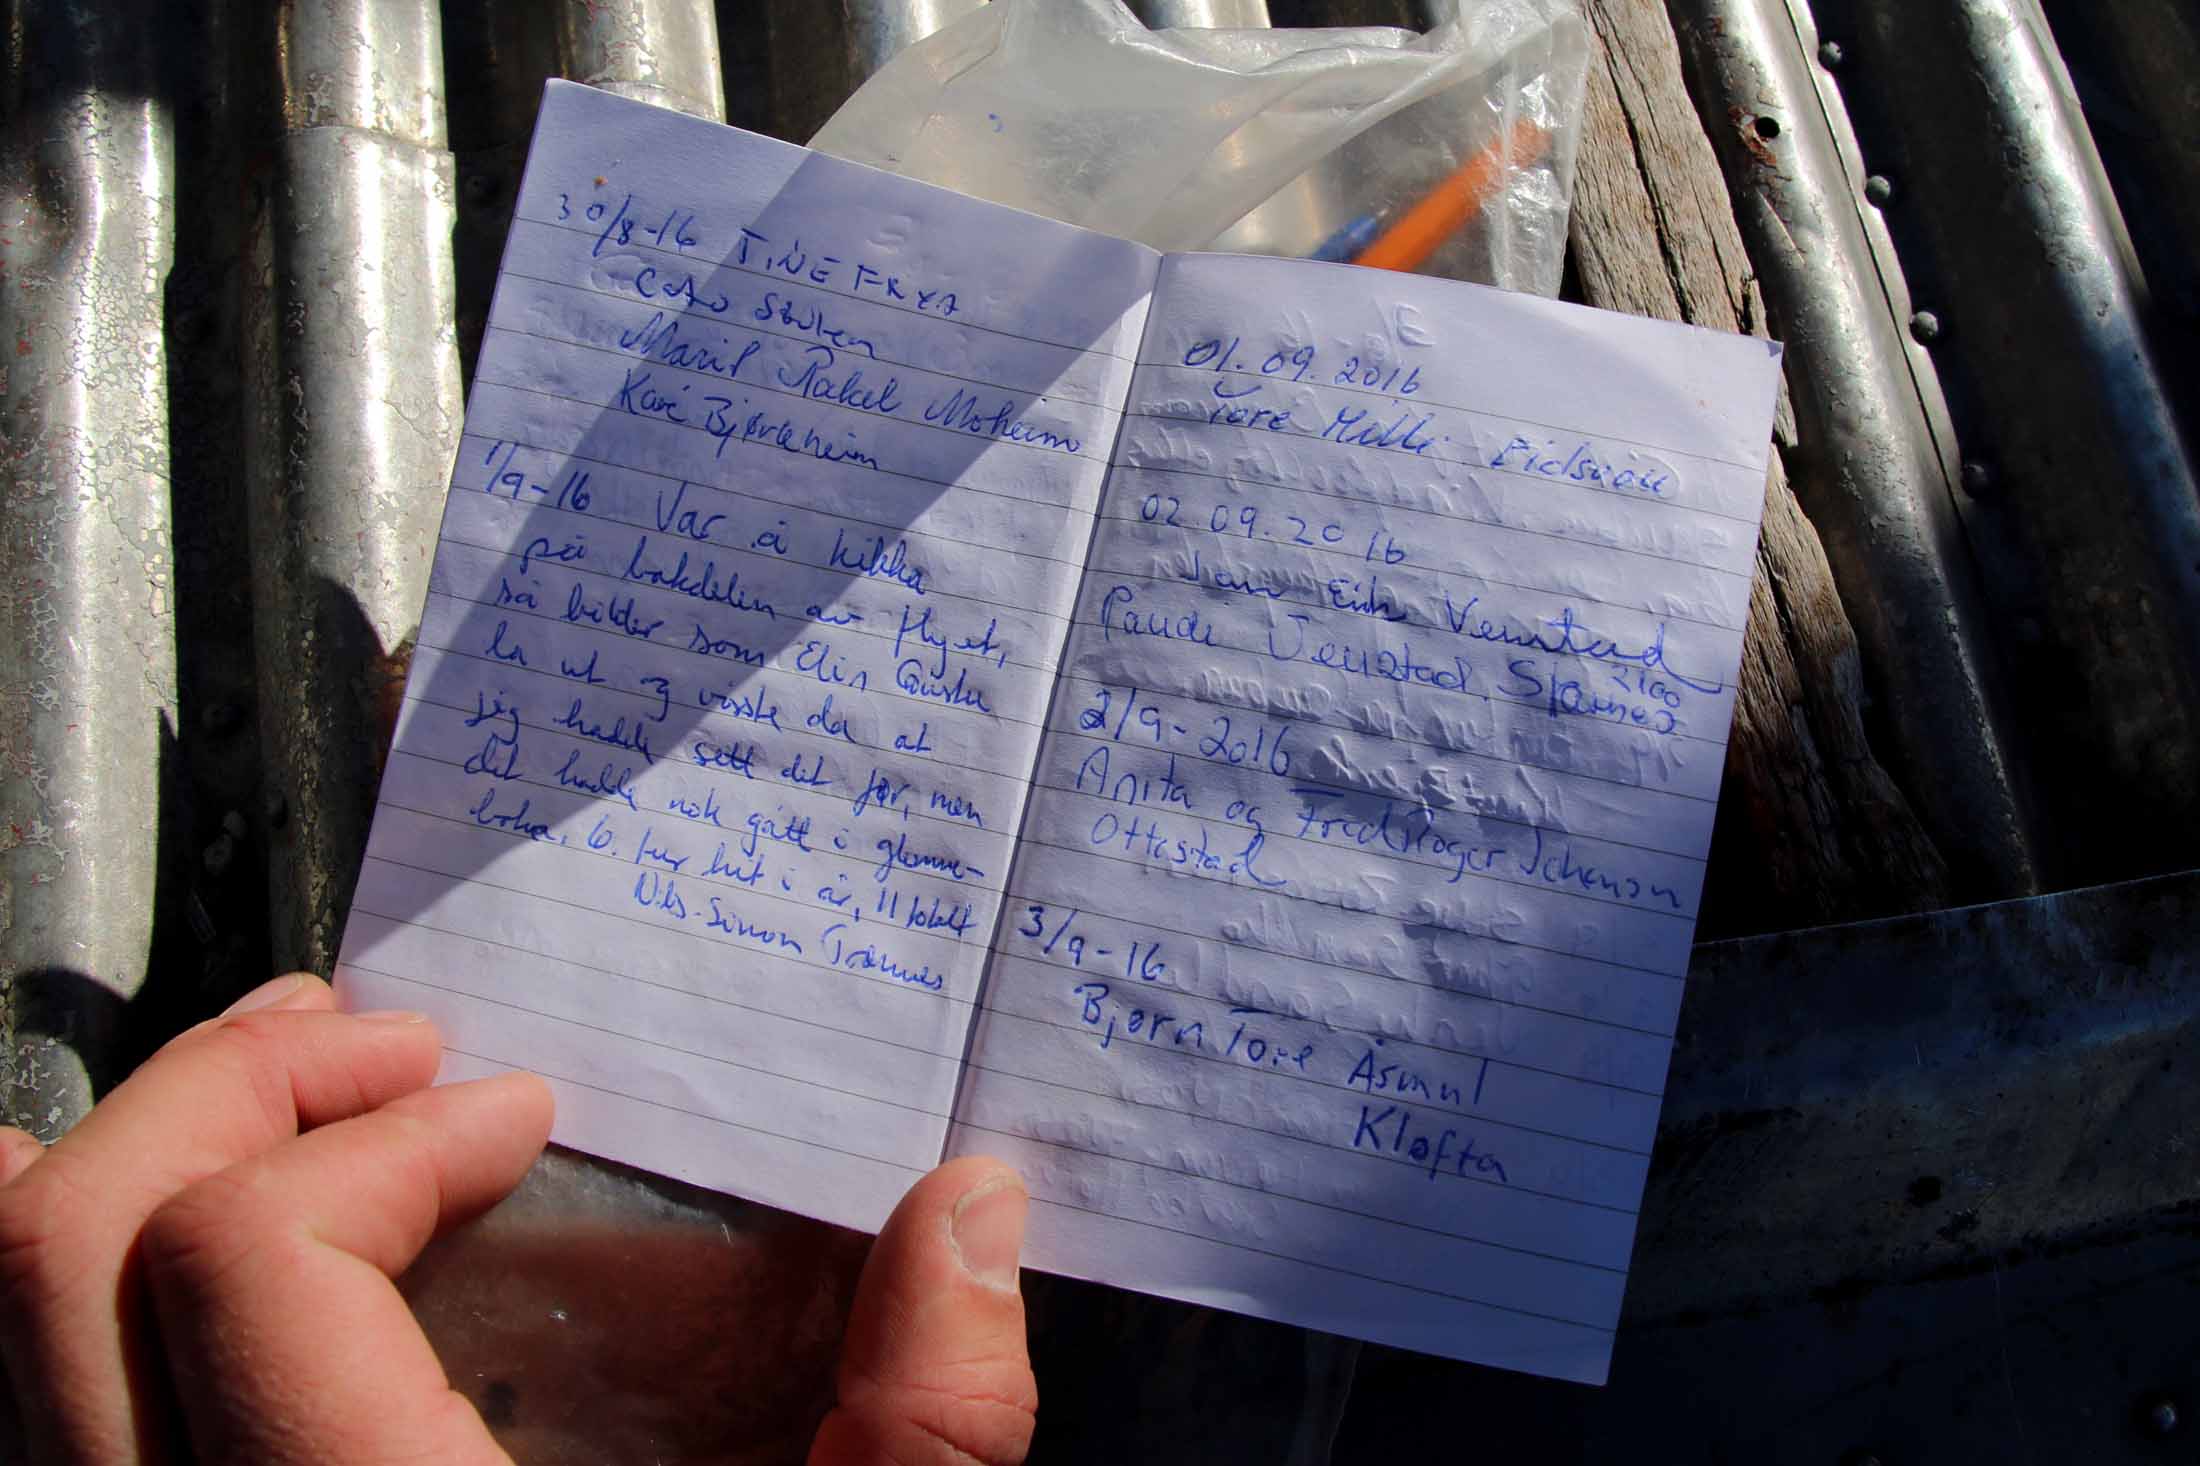 30/8-16 TINE FRYA
Cato
Marit Rakel Moheim
Kari Bjørkheim
1/9-16 Var å kikka
på bakdelen av flyet,
så bilder som Elin
la ut og visste da at
jeg hadde sett det før, men
det hadde nok gått i glemme-
boka. 6. tur hit i år, 11 totalt
Nils-Simon
01.09.2016
Tore
02.09.2016
Jan Erik Venstad
Venstad, 2100
2/9-2016
Anita og Fred Roger Johansen
Ottestad
3/9-16
Bjørn Tore Åsmul
Kløfta